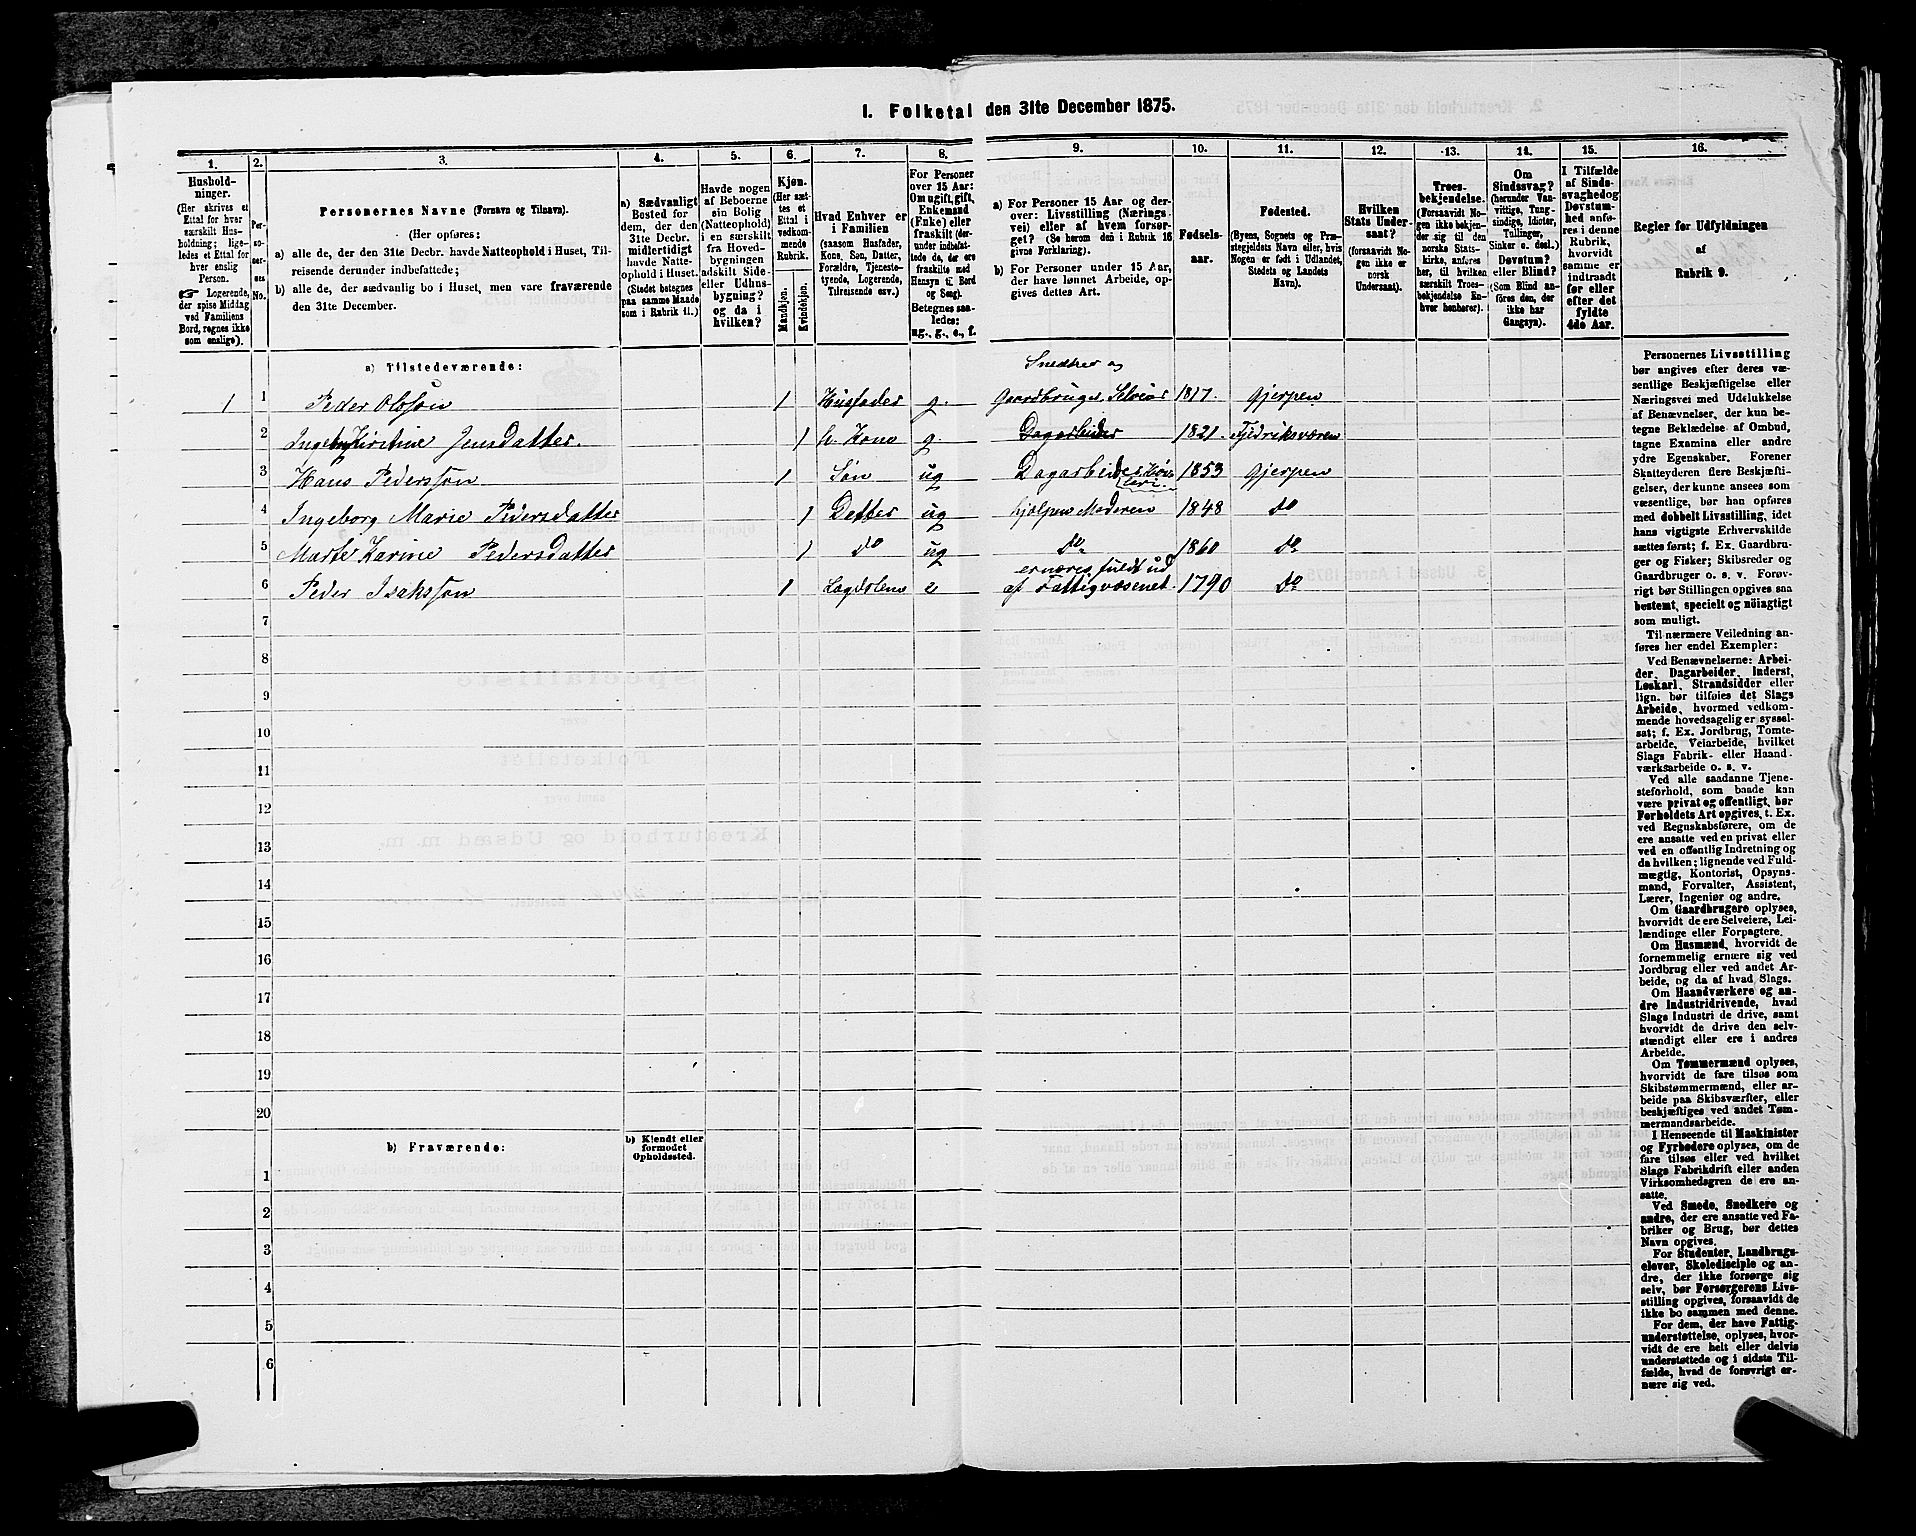 1. Folketal den 31te December 1875.
1. 2. 3. 4. 5. 6. 7. 8. 9. 10. 11. 12. 13. 14. 15. 16.
Hushold-
ninger.
(Her skrives et
Ettal for hver
særskilt Hus-
holdning; lige-
ledes et Ettal for
hver enslig
Person.
☞ Logerende,
der spise Middag
ved Familiens
Bord, regnes ikke
som enslige).
Per-
so-
ner-
nes
No.
Personernes Navne (Fornavn og Tilnavn).
(Her opføres:
a) alle de, der den 31te Decbr. havde Natteophold i Huset, Til-
reisende derunder indbefattede;
b) alle de, der sædvanlig bo i Huset, men vare fraværende
den 31te December.
a) Sædvanligt
Bosted for
dem, der den
31te Decbr.
midlertidigt
havde Natte-
ophold i Huset.
(Stedet betegnes
paa samme Maade
som i Rubrik 11.)
Havde nogen
af Beboerne
sin Bolig
(Natteophold)
i en særskilt
fra Hoved-
bygningen
adskilt Side-
eller Udhus-
bygning?
og da i
hvilken?
Kjøn.
(Her sæt-
tes et
Ettal i
vedkom-
mende
Rubrik.
Mandkjøn.
Kvindekjøn.
Hvad Enhver er
i Familien
(saasom Husfader,
Kone, Søn, Datter,
Forældre, Tjeneste-
tyende, Logerende,
Tilreisende osv.)
For Personer
over 15 Aar:
Om ugift, gift,
Enkemand
(Enke) eller
fraskilt (der-
under indbefat-
tede de, der ere
fraskilte med
Hensyn til Bord
og Seng).
Betegnes saa-
ledes:
ug., g., e., f.
a) For Personer 15 Aar og der-
over: Livsstilling (Nærings-
vei) eller af hvem forsør-
get? (Se herom den i Rubrik 16
givne Forklaring).
b) For Personer under 15 Aar,
der have lønnet Arbeide, op-
gives dettes Art.
Fødsels-
aar.
Fødested.
(Byens, Sognets og Præ-
stegjeldets Navn eller, hvis
Nogen er født i Udlandet,
Stedets og Landets
Navn).
Hvilken
Stats Under-
saat?
(forsaavidt No-
gen ikke er
norsk
Undersaat).
Troes-
bekjendelse.
(Forsaavidt No-
gen ikke bekjen-
der sig til den
norske Stats-
kirke, anføres
her, til hvilken
særskilt Troes-
bekjendelse En-
hver henhører).
Om
Sindssvag?
(herunder Van-
vittige, Tung-
sindige, Idioter,
Tullinger,
Sinker o. desl.)
Døvstum?
eller Blind?
(Som Blind an-
føres den, der
ikke har
Gangsyn).
I Tilfælde
af Sinds-
svaghed og
Døvstum-
hed anfø-
res i denne
Rubrik,
hvorvidt
samme er
indtraadt
før eller
efter det
fyldte
4de Aar.
Regler for Udfyldningen
af
Rubrik 9.
a) Tilstedeværende:
Snedker og
1 1 Peder Olsson 1 Husfader g. Gaardbruger, Selveier 1817. Gjerpen
2 Ingeborg Kirstine Jensdatter. 1 h. Kone g. Dagarbeider 1821. Fredriksværen
3 Hans Pedersson 1 Søn ug Dagarbeider 1853 Gjerpen
4 Ingeborg Marie Pedersdatter 1 Datter ug hjælper Moderen 1848 do
5 Marte Karine Pedersdatter 1 do ug do 1860 do
ernæres fuldt ud
6 Peder Isaksson 1 Lægdslem e af Fattigvæsenet. 1790 do
7
8
9
10
11
12
13
14
15
16
17
18
19
20
b) Fraværende:
b) Kjendt eller
formodet
Opholdssted.
1
2
3
4
5
6
Personernes Livsstilling
bør angives efter deres væ-
sentlige Beskjæftigelse eller
Næringsvei med Udelukkelse
af Benævnelser, der kun be-
tegne Beklædelse af Ombud,
tagne Examina eller andre
ydre Egenskaber. Forener
Skatteyderen flere Beskjæfti-
gelser, der kunne ansees som
væsentlige, bør han opføres
med dobbelt Livsstilling, idet
hans vigtigste Erhvervskilde
sættes først; f. Ex. Gaardbru-
ger og Fisker; Skibsreder og
Gaardbruger o. s. v. Forøv-
rigt bør Stillingen opgives saa
bestemt, specielt og nøiagtigt
som muligt.
Til nærmere Veiledning an-
føres her endel Exempler:
Ved Benævnelserne: Arbei-
der, Dagarbeider, Inderst,
Løskarl, Strandsidder eller
lign. bør tilføies det Slags
Arbeide, hvormed vedkom-
mende hovedsagelig er syssel-
sat; f. Ex. Jordbrug, Tomte-
arbeide, Veiarbeide, hvilket
Slags Fabrik- eller Haand-
værksarbeide o. s. v.
Ved alle saadanne Tjene-
steforhold, som baade kan
være privat og offentligt, bør
Forholdets Art opgives, t. Ex.
ved Regnskabsførere, om de
ere ansatte ved en privat eller
ved en offentlig Indretning og
da hvilken; lignende ved Fuld-
mægtig, Kontorist, Opsyns-
mand, Forvalter, Assistent,
Lærer, Ingeniør og andre.
Om Gaardbrugere oplyses,
hvorvidt de ere Selveiere, Lei-
lændinge eller Forpagtere.
Om Husmænd, hvorvidt de
fornemmelig ernære sig ved
Jordbrug eller ved andet Ar-
beide, og da af hvad Slags.
Om Haandværkere og an-
dre Industridrivende, hvad
Slags Industri de drive, samt
hvorvidt de drive den selv-
stændigt eller ere i andres
Arbeide.
Om Tømmermænd oplyses,
hvorvidt de fare tilsøs som
Skibstømmermænd, eller ar-
beide paa Skibsværfter, eller
beskjæftiges ved andet Tøm-
mermandsarbeide.
I Henseende til Maskinister
og Fyrbødere oplyses, om de
fare tilsøs eller ved hvilket
Slags Fabrikdrift eller anden
Virksomhedsgren de ere an-
satte.
Ved Smede, Snedkere og
andre, der ere ansatte ved Fa-
briker og Brug, bør dettes
Navn opgives.
For Studenter, Landbrugs-
elever, Skoledisciple og an-
dre, der ikke forsørge sig
selv, bør Forsørgerens Livs-
stilling opgives, forsaavidt de
ikke bo sammen med denne.
For dem, der have Fattig-
understøttelse, oplyses, hvor-
vidt de ere helt eller delvis
understøttede og i sidste Til-
fælde, hvad de forøvrigt er-
nære sig ved.